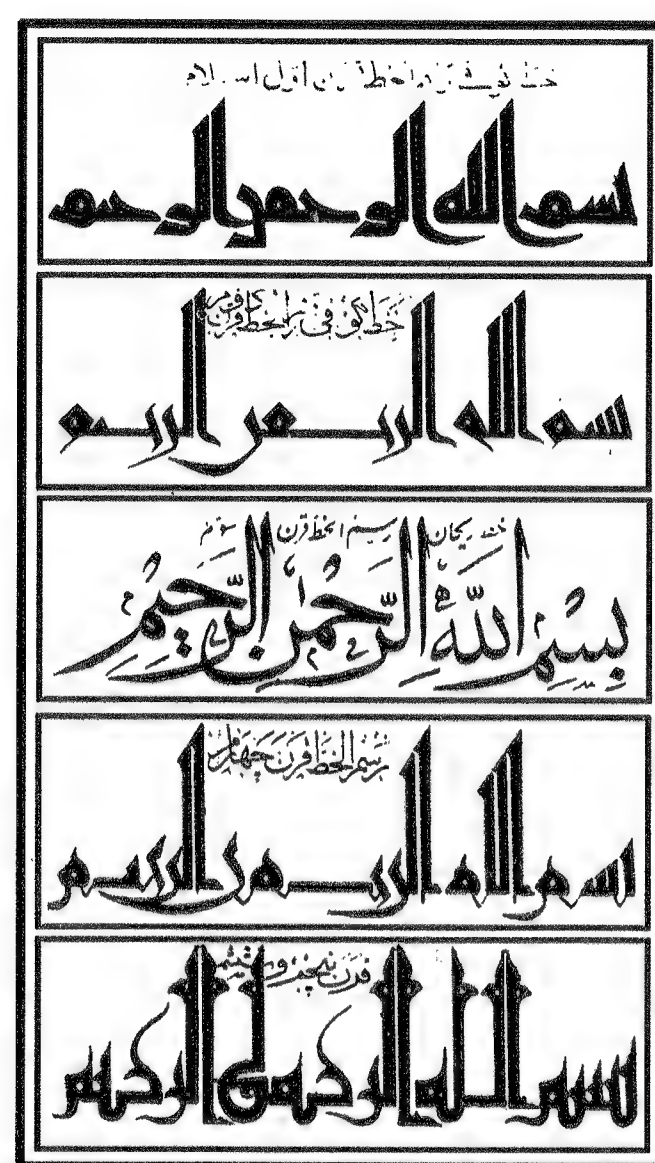 خط کوفی رسم الخط قرن اول اسلام
بسم الله الرحمن الرحيم
خط کوفی رسم الخط قرن دوم
بسم الله الرحمن الرحيم
خط ریحان رسم الخط قرن سوم
بِسْمِ اللهِ الرَّحْمٰنِ الرَّحِيمِ
رسم الخط قرن چهارم
بسم الله الرحمن الرحيم
قرن پنجم و ششم
بسم الله الرحمن الرحيم